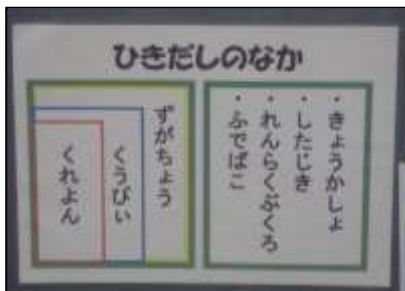 ひきだしのなか
・きょうかしょ
・したじき
・れんらくぶくろ
・ふでばこ
ずがちょう
くうぴい
くれよん